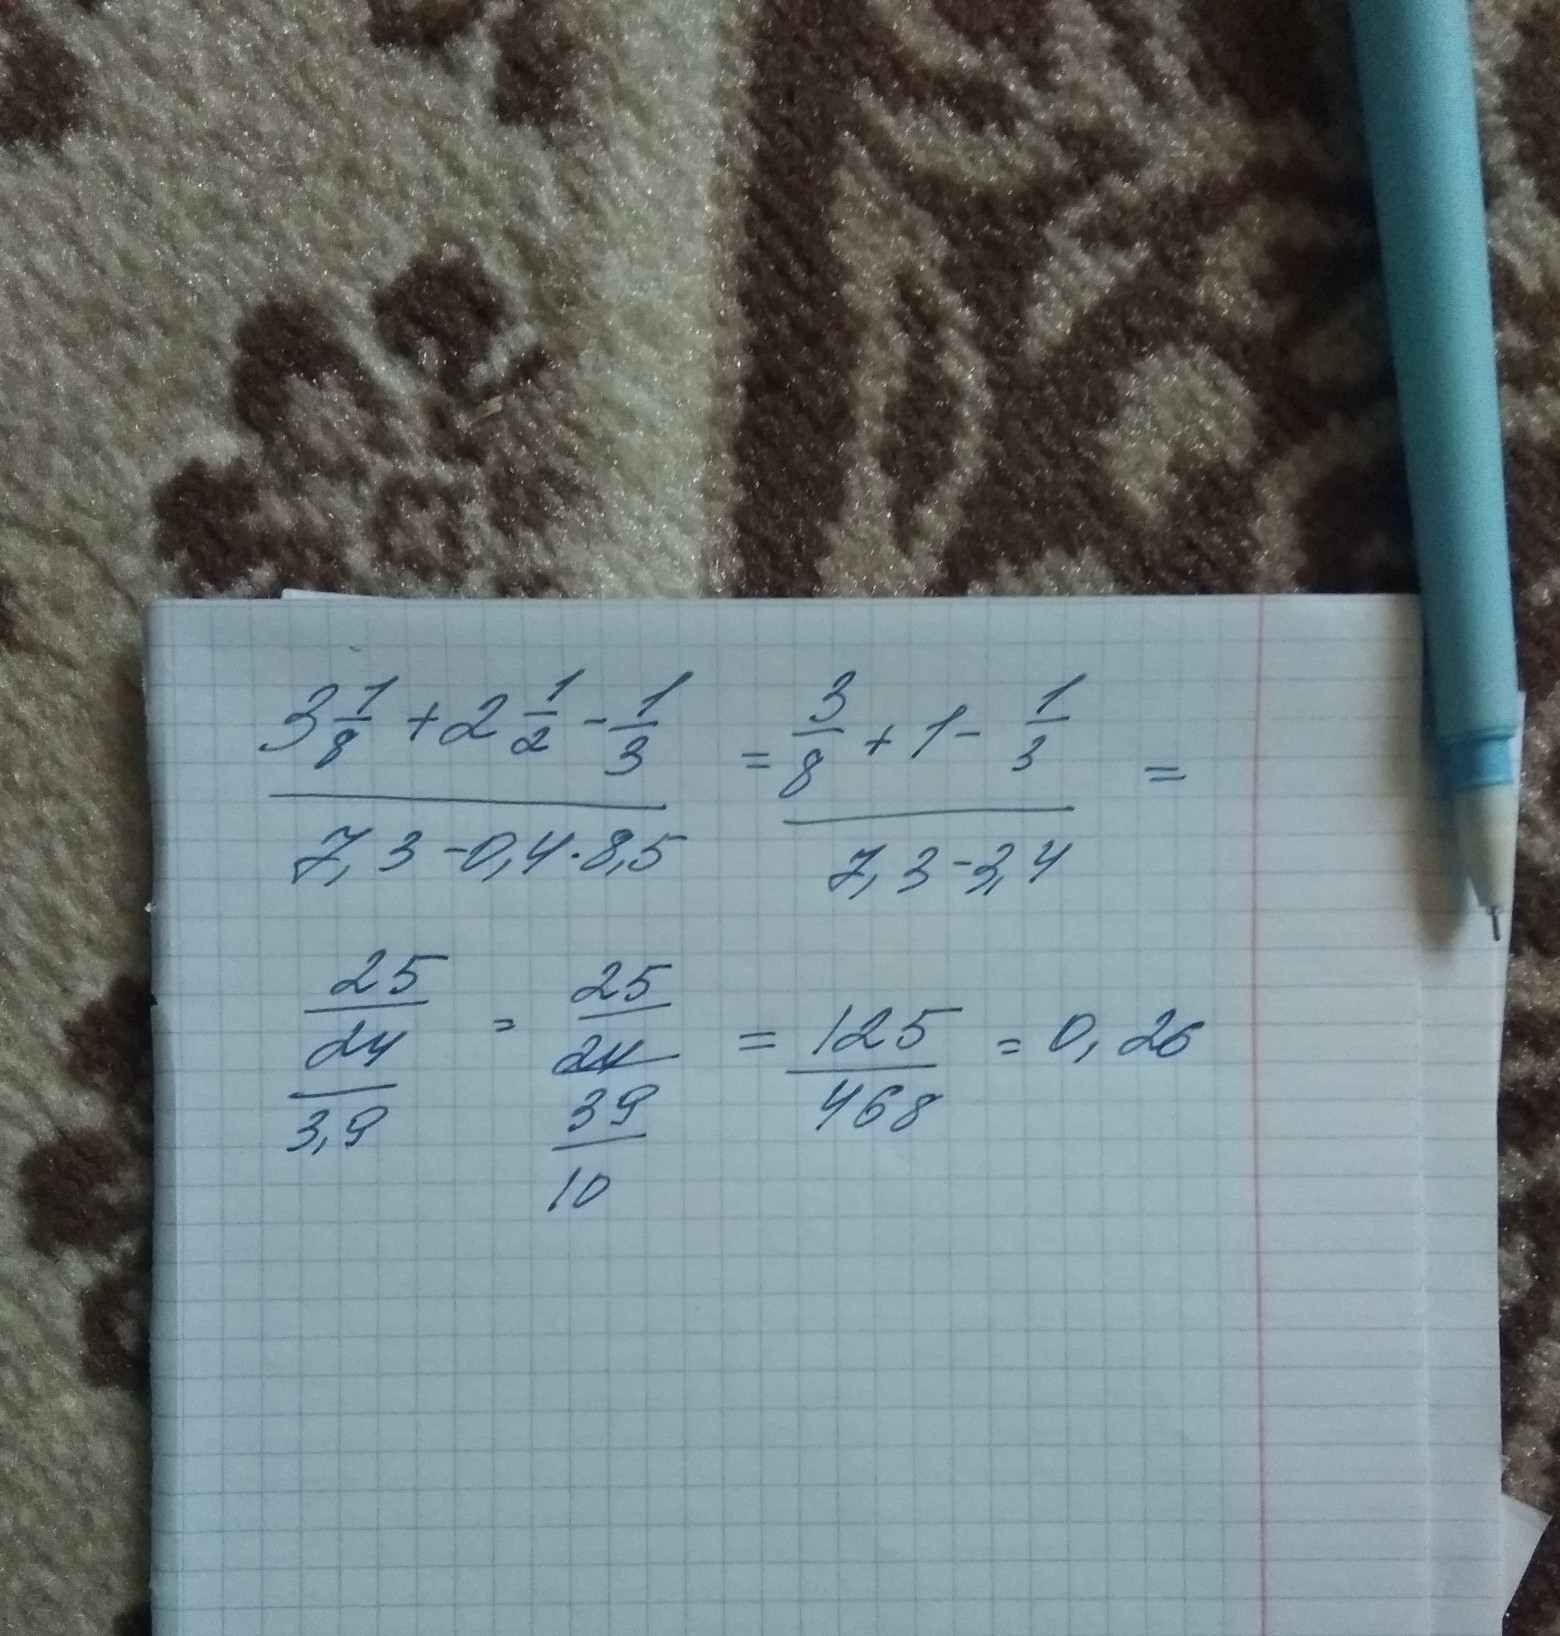 3 1/8 + 2 1/2 - 1/3 / 7,3 - 0,4 · 8,5 = 3/8 + 1 - 1/3 / 7,3 - 3,4 =
25/24 / 3,9 = 25/24 / 39/10 = 125/468 = 0,26